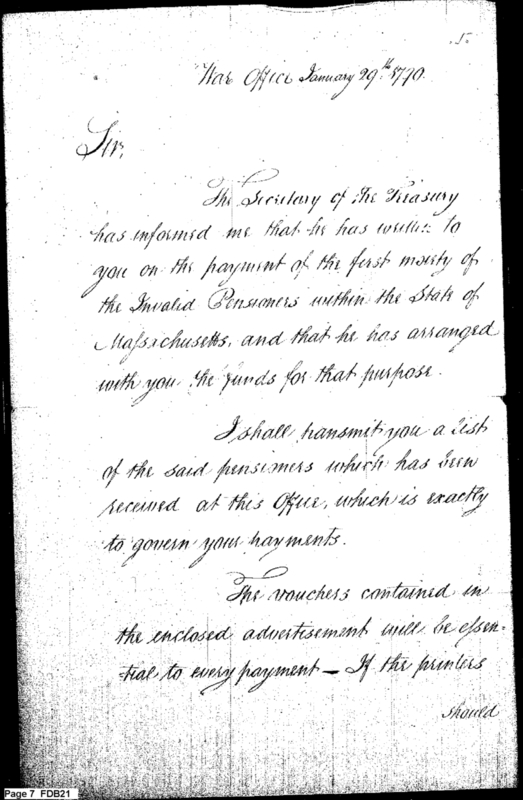 .1.
War Office January 29th 1790.
Sir,
The Secretary of the Treasury
has informed me that he has written to
you on the payment of the first moiety of
the Invalid Pensioners within the State of
Massachusetts, and that he has arranged
with you the funds for that purpose.
I shall transmit you a List
of the said pensioners which has been
received at this Office, which is exactly
to govern your payments.
The vouchers contained in
the enclosed advertisement will be essen=
tial to every payment — If the printers
should
Page 7 FDB21